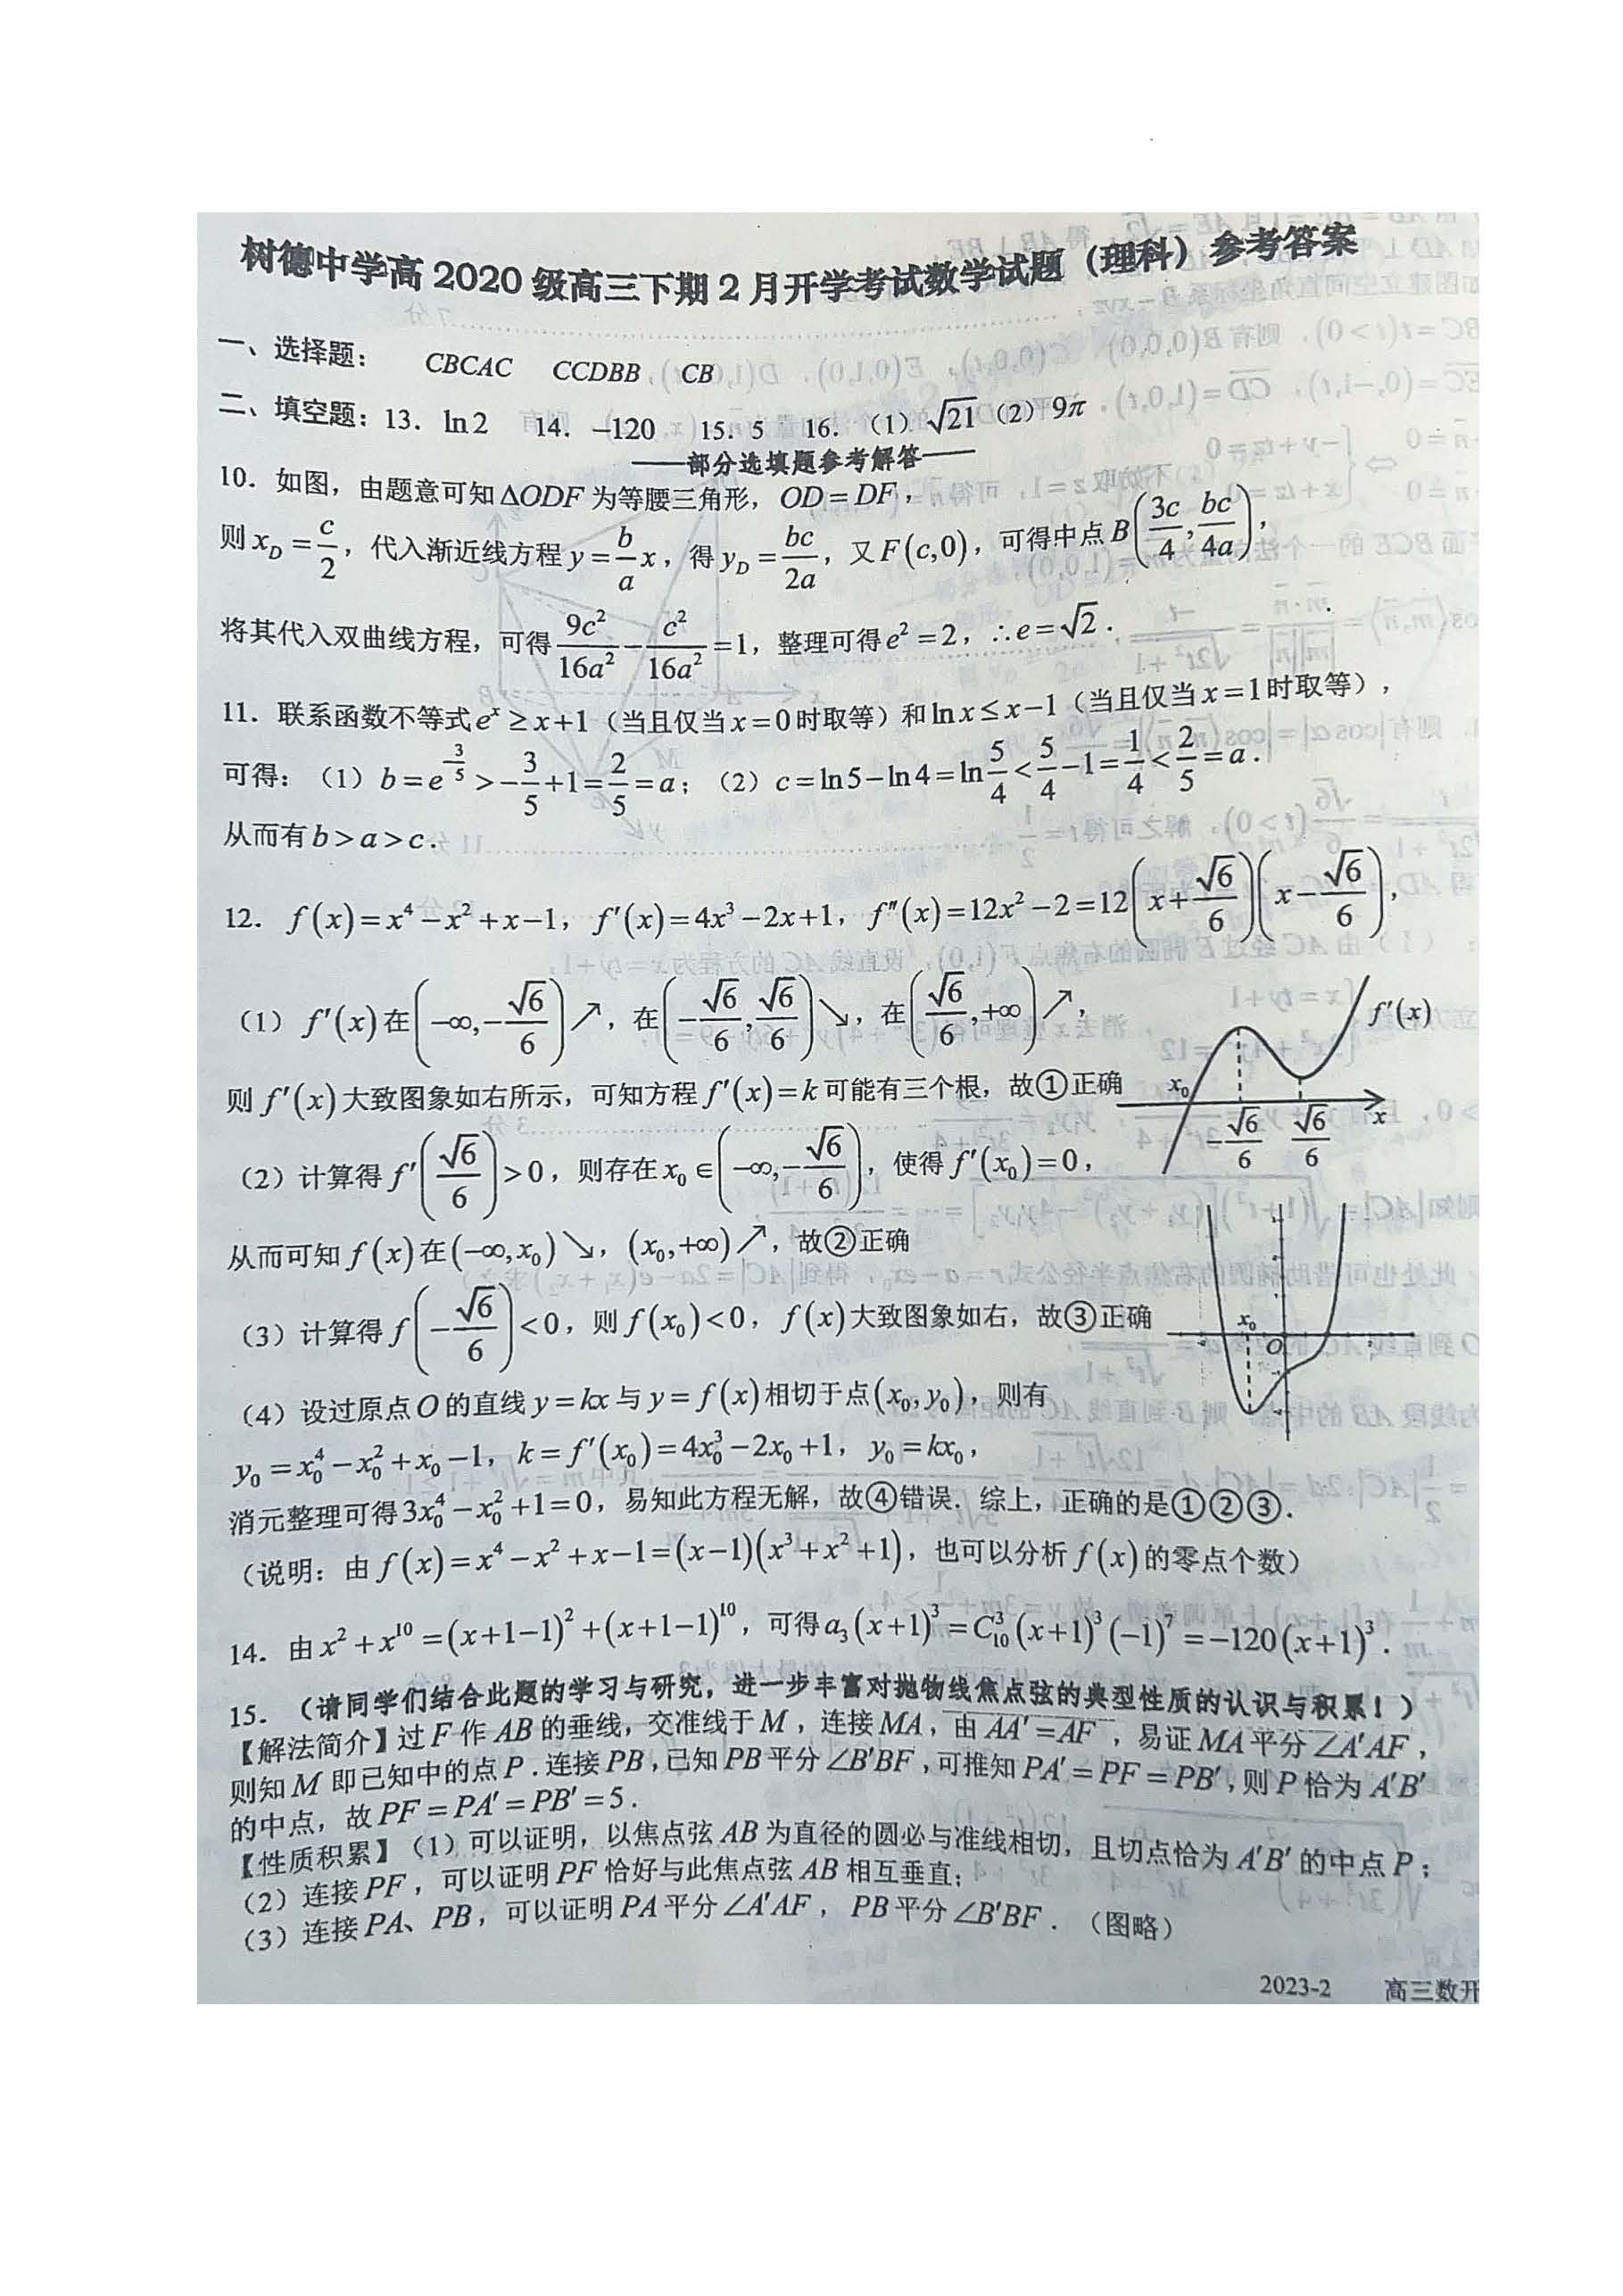 树德中学高 2020 级高三下期 2 月开学考试数学试题（理科）参考答案
一、选择题： CBCAC CCDBB CB
二、填空题：13. ln2 14. −120 15. 5 16.（1）√21（2）9π
——部分选填题参考解答——
10. 如图，由题意可知 ΔODF 为等腰三角形，OD = DF，
则 x_D = c/2，代入渐近线方程 y = (b/a)x，得 y_D = bc/2a，又 F(c,0)，可得中点 B(3c/4, bc/4a)，
将其代入双曲线方程，可得 9c²/16a² − c²/16a² = 1，整理可得 e² = 2，∴e = √2．
11. 联系函数不等式 eˣ ≥ x+1（当且仅当 x = 0 时取等）和 ln x ≤ x−1（当且仅当 x = 1 时取等），
可得：（1）b = e^(−3/5) > −3/5 + 1 = 2/5 = a；（2）c = ln5 − ln4 = ln 5/4 < 5/4 − 1 = 1/4 < 2/5 = a．
从而有 b > a > c．
12. f(x) = x⁴ − x² + x − 1，f′(x) = 4x³ − 2x + 1，f″(x) = 12x² − 2 = 12(x + √6/6)(x − √6/6)，
（1）f′(x) 在 (−∞, −√6/6) ↗，在 (−√6/6, √6/6) ↘，在 (√6/6, +∞) ↗，
则 f′(x) 大致图象如右所示，可知方程 f′(x) = k 可能有三个根，故①正确
f′(x)
x₀
−√6/6 √6/6 x
（2）计算得 f′(√6/6) > 0，则存在 x₀ ∈ (−∞, −√6/6)，使得 f′(x₀) = 0，
从而可知 f(x) 在 (−∞, x₀) ↘，(x₀, +∞) ↗，故②正确
（3）计算得 f(−√6/6) < 0，则 f(x₀) < 0，f(x) 大致图象如右，故③正确
x₀
O
（4）设过原点 O 的直线 y = kx 与 y = f(x) 相切于点 (x₀, y₀)，则有
y₀ = x₀⁴ − x₀² + x₀ − 1，k = f′(x₀) = 4x₀³ − 2x₀ + 1，y₀ = kx₀，
消元整理可得 3x₀⁴ − x₀² + 1 = 0，易知此方程无解，故④错误．综上，正确的是①②③．
（说明：由 f(x) = x⁴ − x² + x − 1 = (x−1)(x³ + x² + 1)，也可以分析 f(x) 的零点个数）
14. 由 x² + x¹⁰ = (x+1−1)² + (x+1−1)¹⁰，可得 a₃(x+1)³ = C₁₀³(x+1)³(−1)⁷ = −120(x+1)³．
15. （请同学们结合此题的学习与研究，进一步丰富对抛物线焦点弦的典型性质的认识与积累！）
【解法简介】过 F 作 AB 的垂线，交准线于 M，连接 MA，由 AA′ = AF，易证 MA 平分 ∠A′AF，
则知 M 即已知中的点 P．连接 PB，已知 PB 平分 ∠B′BF，可推知 PA′ = PF = PB′，则 P 恰为 A′B′
的中点，故 PF = PA′ = PB′ = 5．
【性质积累】（1）可以证明，以焦点弦 AB 为直径的圆必与准线相切，且切点恰为 A′B′ 的中点 P；
（2）连接 PF，可以证明 PF 恰好与此焦点弦 AB 相互垂直；
（3）连接 PA、PB，可以证明 PA 平分 ∠A′AF，PB 平分 ∠B′BF．（图略）
2023-2 高三数开